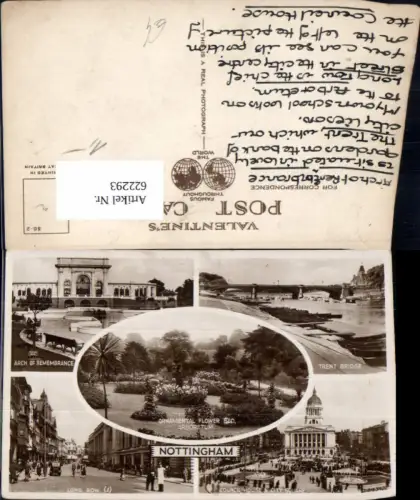 VALENTINE'S
POST CA
FAMOUS
THROUGHOUT
THE
WORLD
FOR CORRESPONDENCE
THIS IS A REAL PHOTOGRAPH
Artikel Nr.
622293
64
Arch of Remembrance
is situated in lovely
gardens on the bank of
the Trent, which our
City Lesson.
My own school looks on
to the Arboretum.
Long Row is the chief
street in the city centre
You can see its position
on the left of the picture of
the Council House.
ARCH OF REMEMBRANCE
TRENT BRIDGE
ORNAMENTAL FLOWER
LONG ROW
NOTTINGHAM